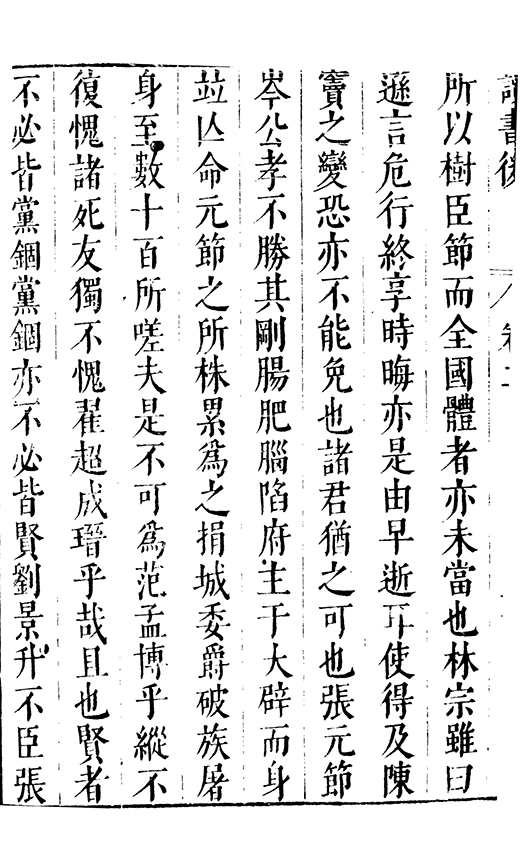 讀書後
卷二
所以樹臣節而全國體者亦未當也林宗雖曰
遜言危行終享時晦亦是由早逝耳使得及陳
竇之變恐亦不能免也諸君猶之可也張元節
岑公孝不勝其剛腸肥腦陷府主于大辟而身
竝亾命元節之所株累爲之捐城委爵破族屠
身至數十百所嗟夫是不可爲范孟博乎縱不
復愧諸死友獨不愧翟超成瑨乎哉且也賢者
不必皆黨錮黨錮亦不必皆賢劉景升不臣張